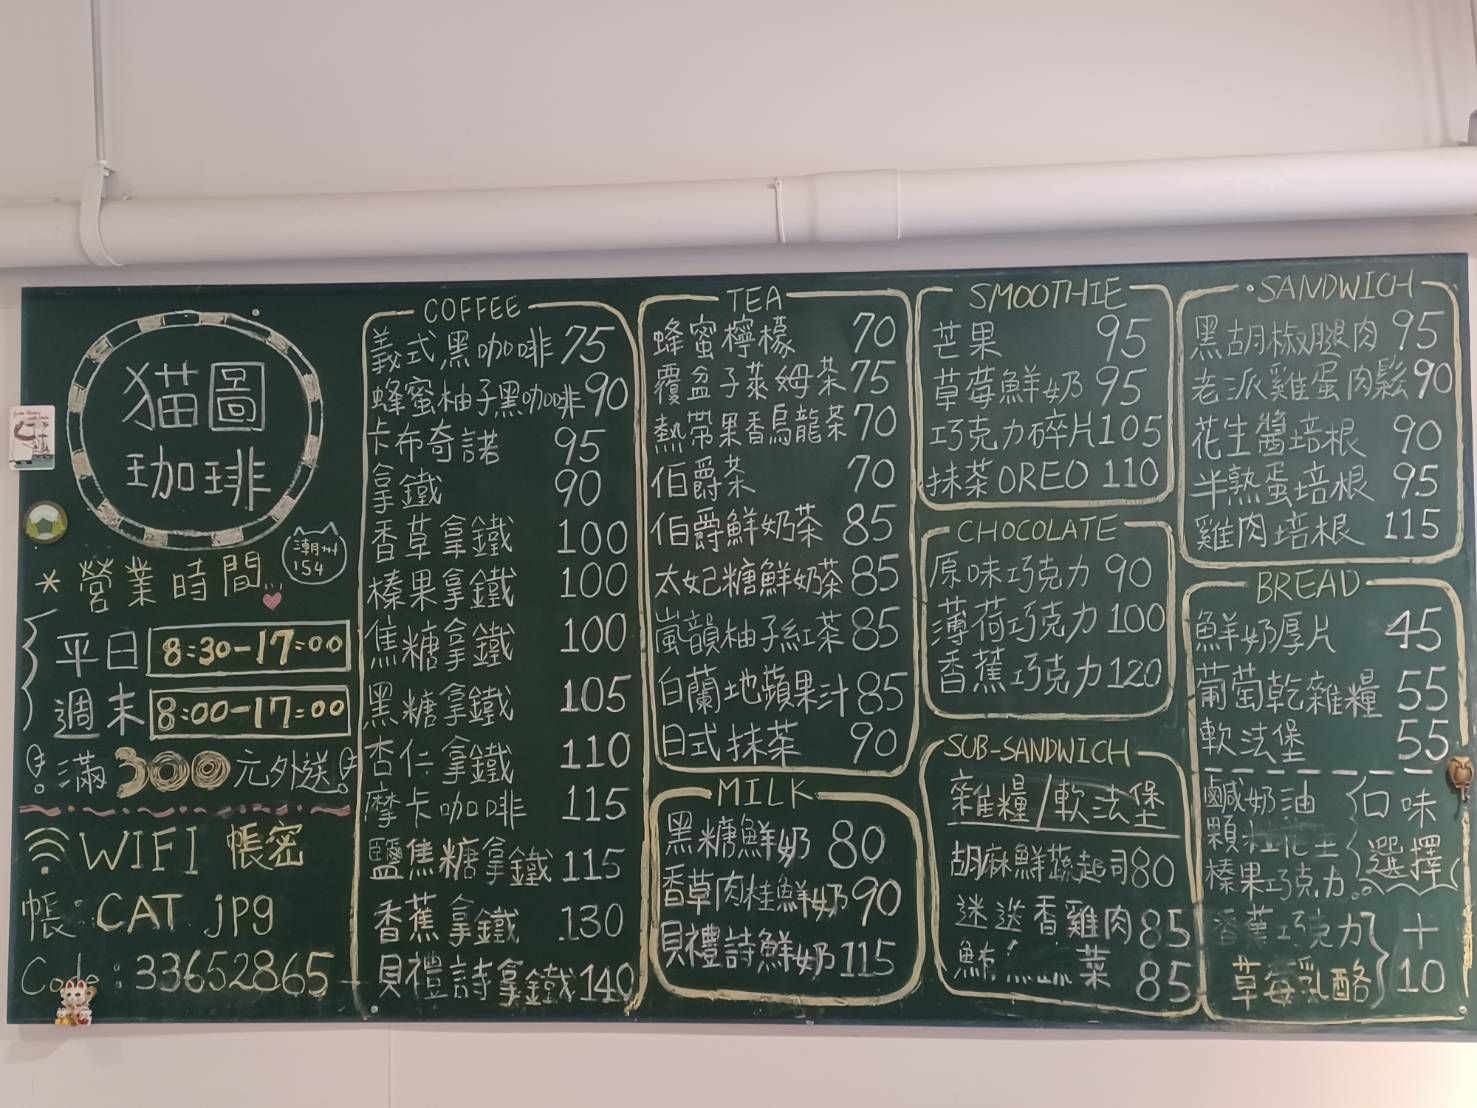 猫圖
珈琲
潮州
154
*營業時間...
平日 8:30-17:00
週末 8:00-17:00
滿300元外送
WIFI 帳密
帳:CAT jpg
Code:33652865
COFFEE
義式黑咖啡 75
蜂蜜柚子黑咖啡 90
卡布奇諾 95
拿鐵 90
香草拿鐵 100
榛果拿鐵 100
焦糖拿鐵 100
黑糖拿鐵 105
杏仁拿鐵 110
摩卡咖啡 115
鹽焦糖拿鐵 115
香蕉拿鐵 130
貝禮詩拿鐵 140
TEA
蜂蜜檸檬 70
覆盆子萊姆茶 75
熱帶果香烏龍茶 70
伯爵茶 70
伯爵鮮奶茶 85
太妃糖鮮奶茶 85
嵐韻柚子紅茶 85
白蘭地蘋果汁 85
日式抹茶 90
MILK
黑糖鮮奶 80
香草肉桂鮮奶 90
貝禮詩鮮奶 115
SMOOTHIE
芒果 95
草莓鮮奶 95
巧克力碎片 105
抹茶OREO 110
CHOCOLATE
原味巧克力 90
薄荷巧克力 100
香蕉巧克力 120
SUB-SANDWICH
雜糧/軟法堡
胡麻鮮蔬起司 80
迷迭香雞肉 85
菜 85
SANDWICH
黑胡椒腿肉 95
老派雞蛋肉鬆 90
花生醬培根 90
半熟蛋培根 95
雞肉培根 115
BREAD
鮮奶厚片 45
葡萄乾雜糧 55
軟法堡 55
鹹奶油
顆粒花生
榛果巧克力
口味
選擇
香蕉巧克力
草莓乳酪
+
10